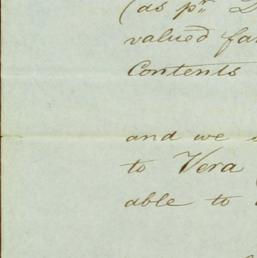 (as pr
valued fa
Contents
and we
to Vera
able to